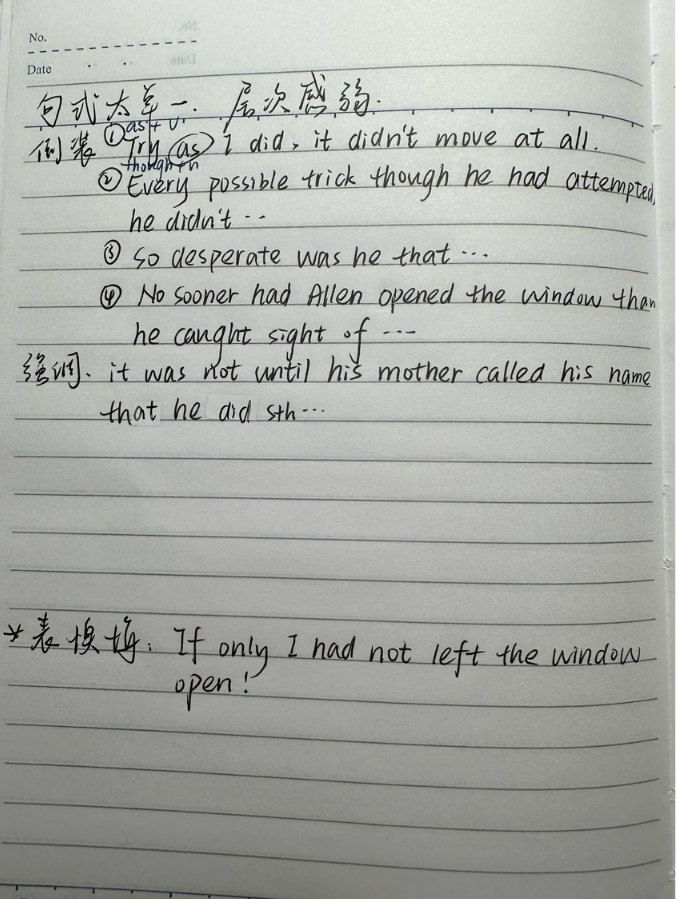 No.
Date
句式太单一. 层次感弱.
as + v.
倒装 ① Try (as) I did, it didn't move at all.
though+n
② Every possible trick though he had attempted,
he didn't ...
③ so desperate was he that ...
④ No sooner had Allen opened the window than
he caught sight of ...
强调. it was not until his mother called his name
that he did sth ...
* 表懊悔: If only I had not left the window
open!